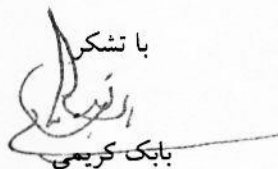 با تشکر
بابک کریمی